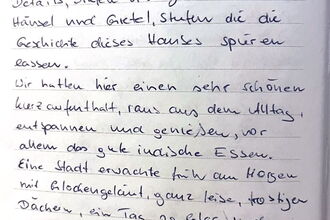 Hänsel und Gretel, Stufen die die
Geschichte dieses Hauses spüren
lassen.
Wir hatten hier einen sehr schönen
Kurzaufenthalt, raus aus dem Alltag,
entspannen und genießen, vor
allem das gute indische Essen.
Eine Stadt erwachte früh am Morgen
mit Glockengeläut, ganz leise, frostigen
Dächern, ein Tag